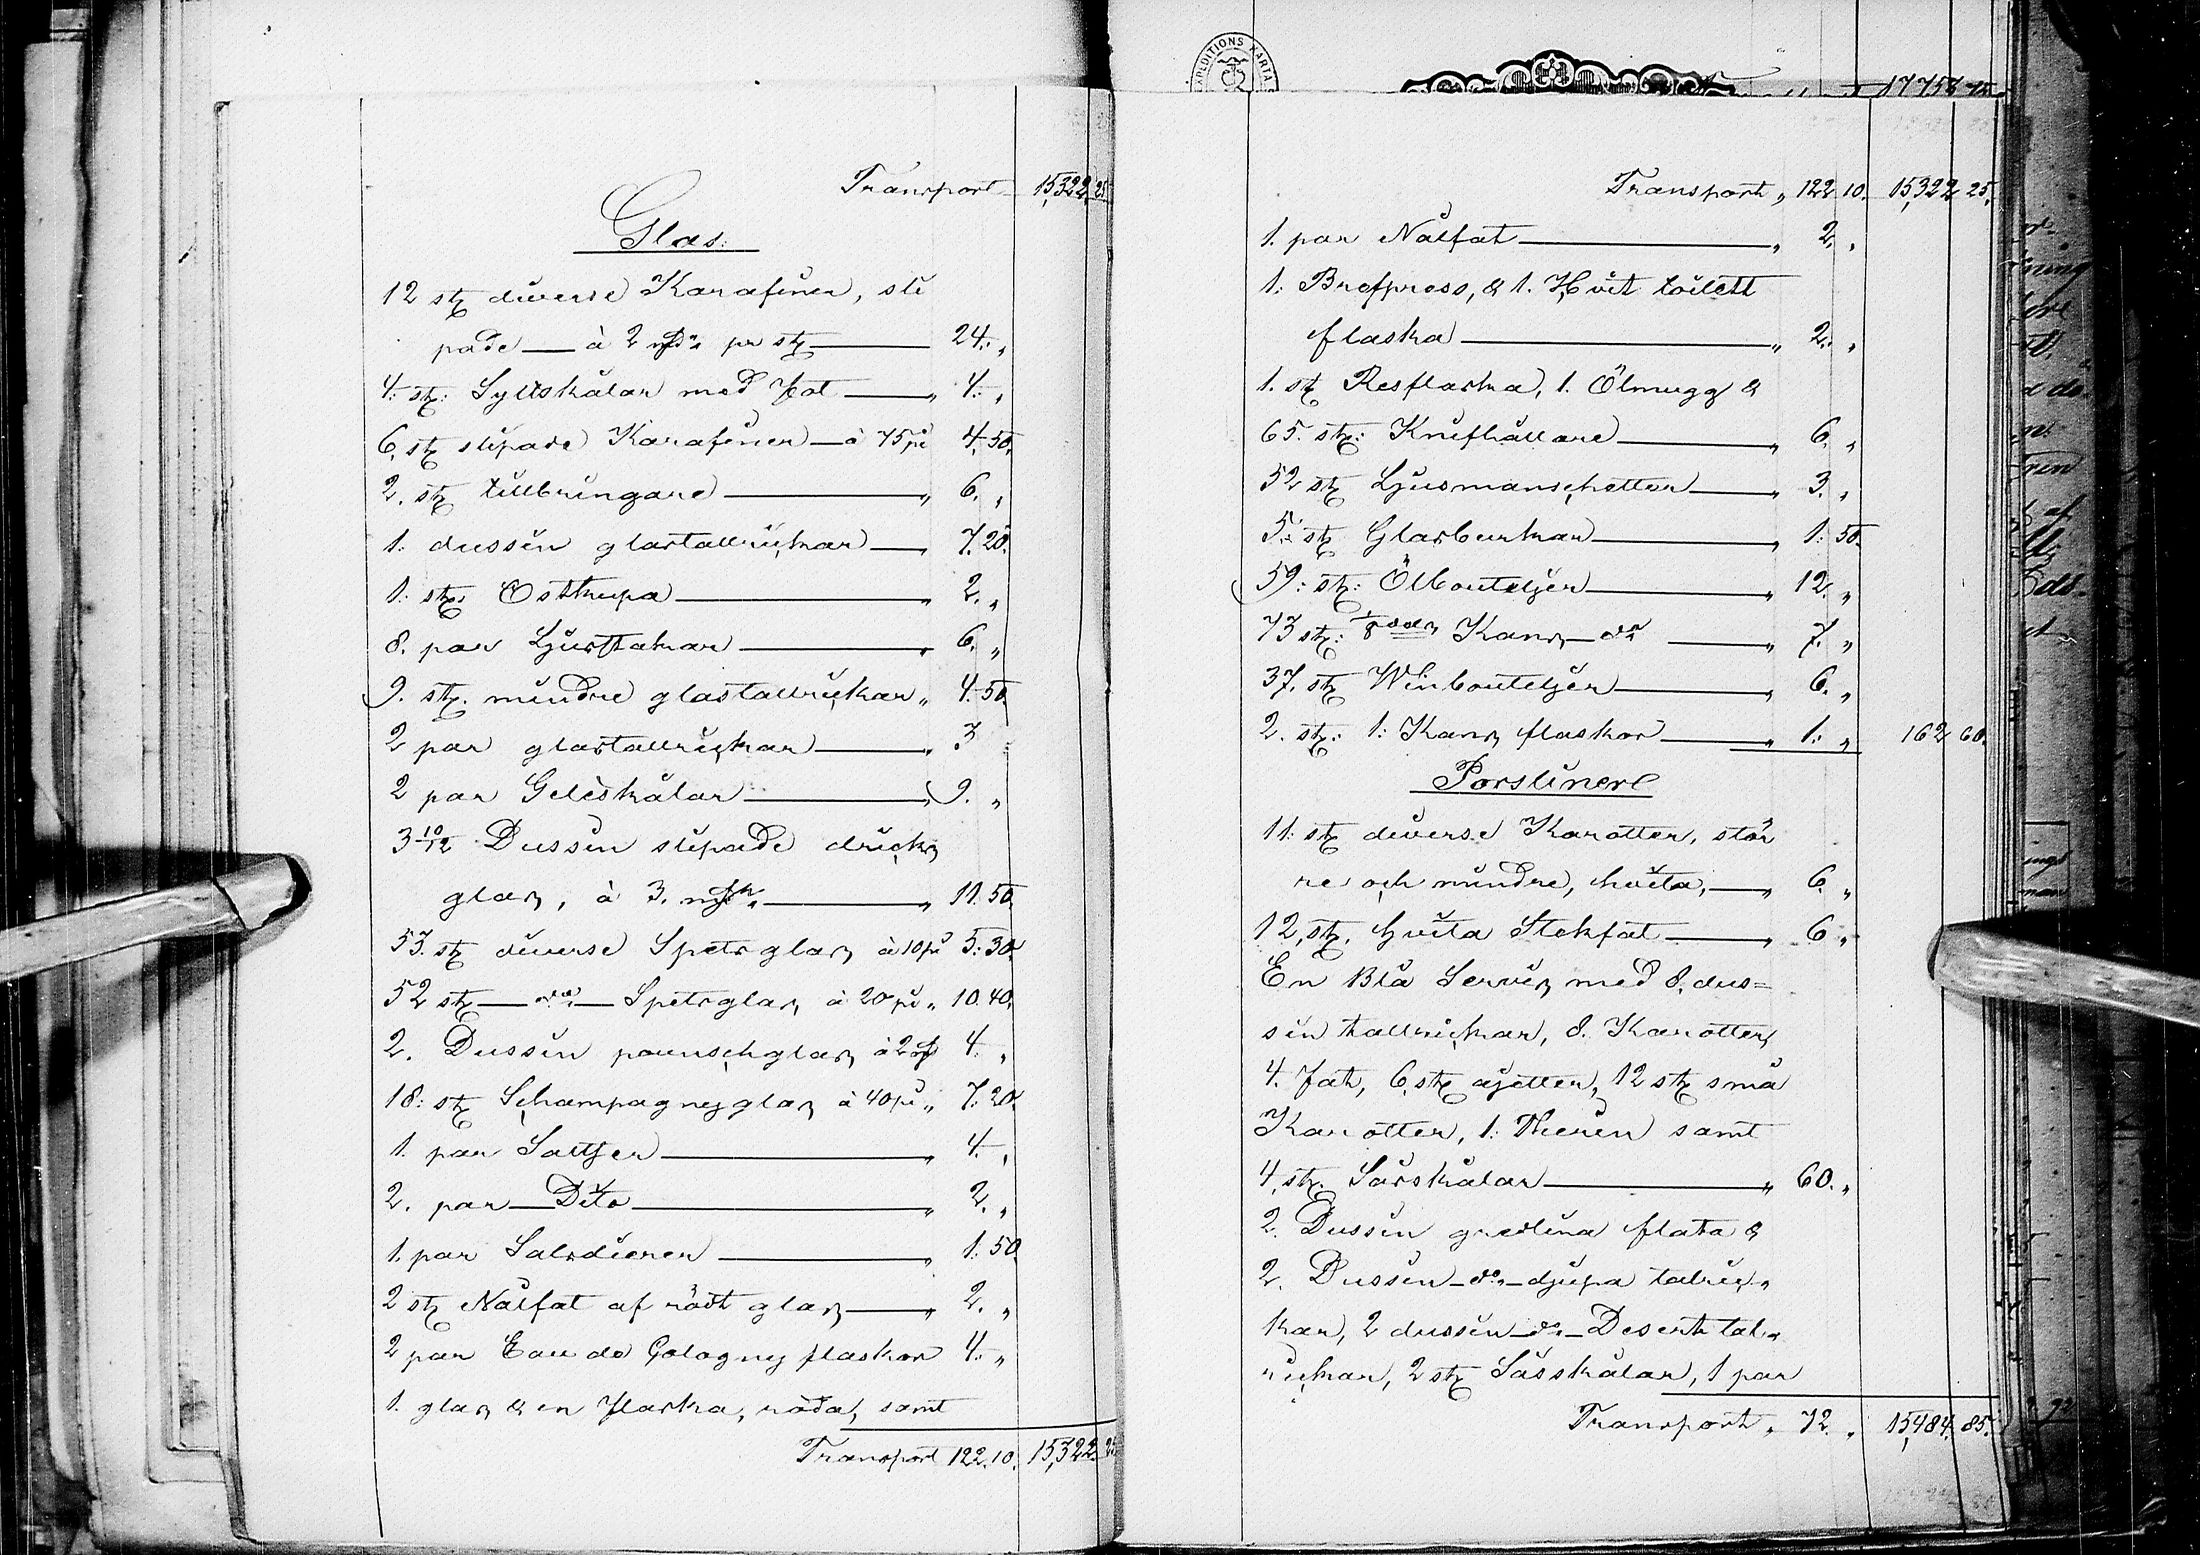 Transport 15,322 25
Glas.
12 st diverse Karafiner, sli
pade — à 2 pr st — 24. "
4. st: Syltskålar med fot — " 4. "
6. st slipade Karafiner — à 75 4. 50.
2. st tillbringare — " 6. "
1. dussin glastallrickar — " 7. 20.
1. st. Ostkupa — " 2. "
8. par Ljusstakar — " 6. "
9. st. mindre glastallrickar " 4. 50.
2 par glastallrickar — " 3
2 par Geléskålar — " 9. "
3 10/12 Dussin slipade dricks
glas, à 3. — " 11. 50.
53. st diverse Spetsglas à 10 5. 30.
52 st — do — Spetsglas à 20 " 10. 40.
2. Dussin pounschglas à 2 4. "
18. st Schampagneglas à 40 " 7. 20.
1. par Saltser — " 4. "
2. par — Dito — " 2. "
1. par Salsdierer — " 1. 50
2 st Nålfat af rödt glas — " 2. "
2 par Eau de Cologne flaskor 4. "
1. glas & en flaska, röda, samt
Transport 122. 10. 15,322. 25
EXPEDITIONS KARTA
17758
Transport " 122 10. 15,322 25.
1. par Nålfat — " 2. "
1. Brefpress, & 1. Hvit toilett
flaska — " 2. "
1. st Resflaska, 1. Ölmugg &
65. st: Knifhållare — " 6. "
52 st Ljusmanschetter — " 3. "
5. st Glasburkar — " 1. 50.
59. st: Ölbouteljer — " 12. "
73 st: 1/8 dels Kans — do — " 7. "
37. st Winbouteljer — " 6. "
2. st: 1. Kans flaskor — " 1. " 162 60.
Porsliner
11. st diverse Karotter, stör
re och mindre, hvita, — " 6. "
12, st. hvita Stekfat — " 6 "
En Blå Servis med 8. dus=
sin tallrickar, 8. Karotter,
4. fat, 6. st asietter, 12 st små
Karotter, 1. Therin samt
4, st. Såsskålar — " 60. "
2. Dussin gredlina flata &
2. Dussin — do — djupa talric,,
kar, 2 dussin — do — Desert tal,,
rickar, 2 st Såsskålar, 1 par
Transport " 72. " 15,484. 85.